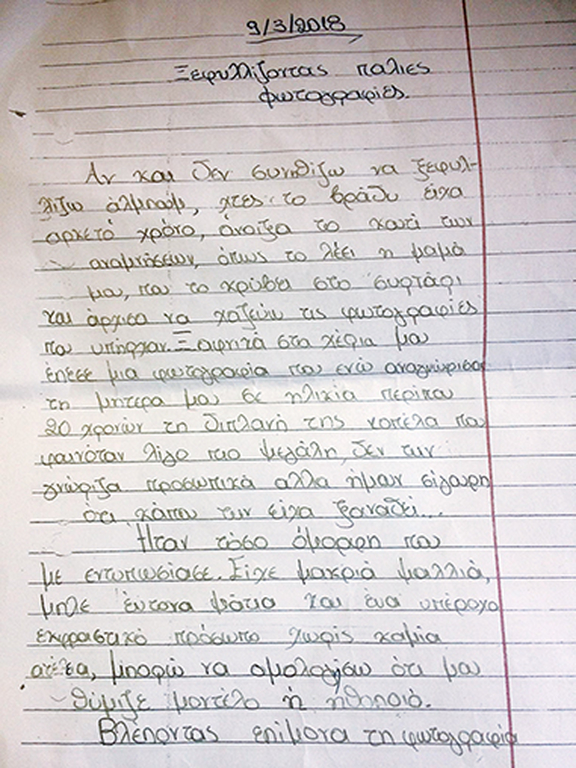 9/3/2018
Ξεφυλλίζοντας παλιές
φωτογραφίες.
Αν και δεν συνηθίζω να ξεφυλ-
λίζω άλμπουμ, χτες το βράδυ είχα
αρκετό χρόνο, άνοιξα το κουτί των
αναμνήσεων, όπως το λέει η μαμά
μου, που το κρύβει στο συρτάρι
και άρχισα να χαζεύω τις φωτογραφίες
που υπήρχαν. Ξαφνικά στα χέρια μου
έπεσε μια φωτογραφία που ενώ αναγνώρισα
τη μητέρα μου σε ηλικία περίπου
20 χρονών τη διπλανή της κοπέλα που
φαινόταν λίγο πιο μεγάλη, δεν την
γνώριζα προσωπικά αλλα ήμουν σίγουρη
ότι κάπου την είχα ξαναδεί...
Ήταν τόσο όμορφη που
με εντυπωσίασε. Είχε μακριά μαλλιά,
μπλε έντονα μάτια και ένα υπέροχο
εκφραστικό πρόσωπο χωρίς καμία
ατέλεια, μπορώ να ομολογήσω ότι μου
θύμιζε μοντέλο ή ηθοποιό.
Βλέποντας επίμονα τη φωτογραφία